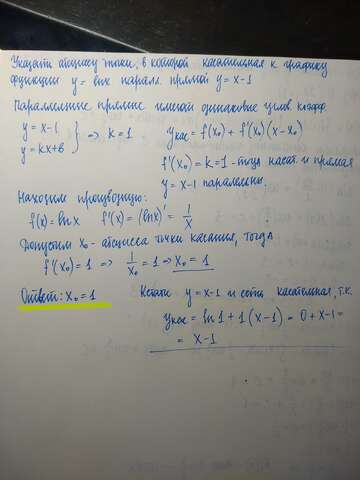 Указать абсциссу точки, в которой касательная к графику
функции y = lnx паралл прямой y = x-1
Параллельные прямые имеют одинаковые углов. коэфф
y = x-1
y = kx+b } => k = 1
yкас = f(x₀) + f'(x₀)(x-x₀)
f'(x₀) = k = 1 - тогда касат. и прямая
y = x-1 параллельны.
Находим производную:
f(x) = ln x f'(x) = (ln x)' = 1/x
Допустим x₀ - абсцисса точки касания, тогда
f'(x₀) = 1 => 1/x₀ = 1 => x₀ = 1
Ответ: x₀ = 1
Кстати y = x-1 и есть касательная, т.к.
yкас = ln 1 + 1(x-1) = 0 + x-1 =
= x-1